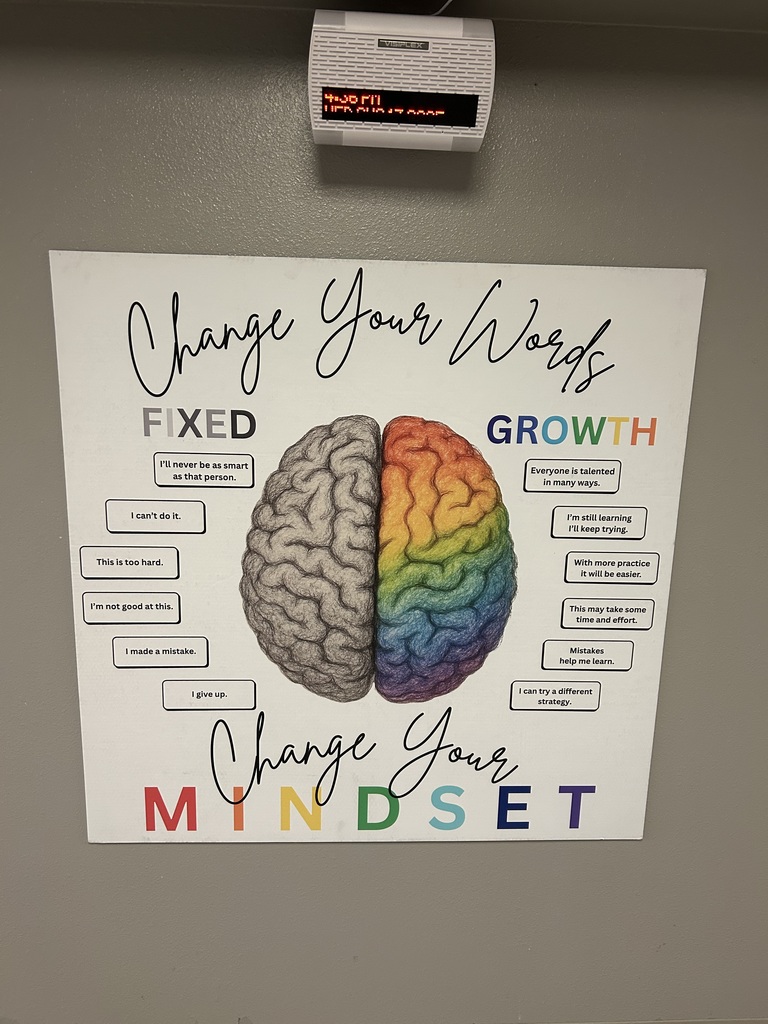 VISIPLEX
4:36 PM
Change Your Words
FIXED
GROWTH
I'll never be as smart
as that person.
I can't do it.
This is too hard.
I'm not good at this.
I made a mistake.
I give up.
Everyone is talented
in many ways.
I'm still learning
I'll keep trying.
With more practice
it will be easier.
This may take some
time and effort.
Mistakes
help me learn.
I can try a different
strategy.
Change Your
MINDSET